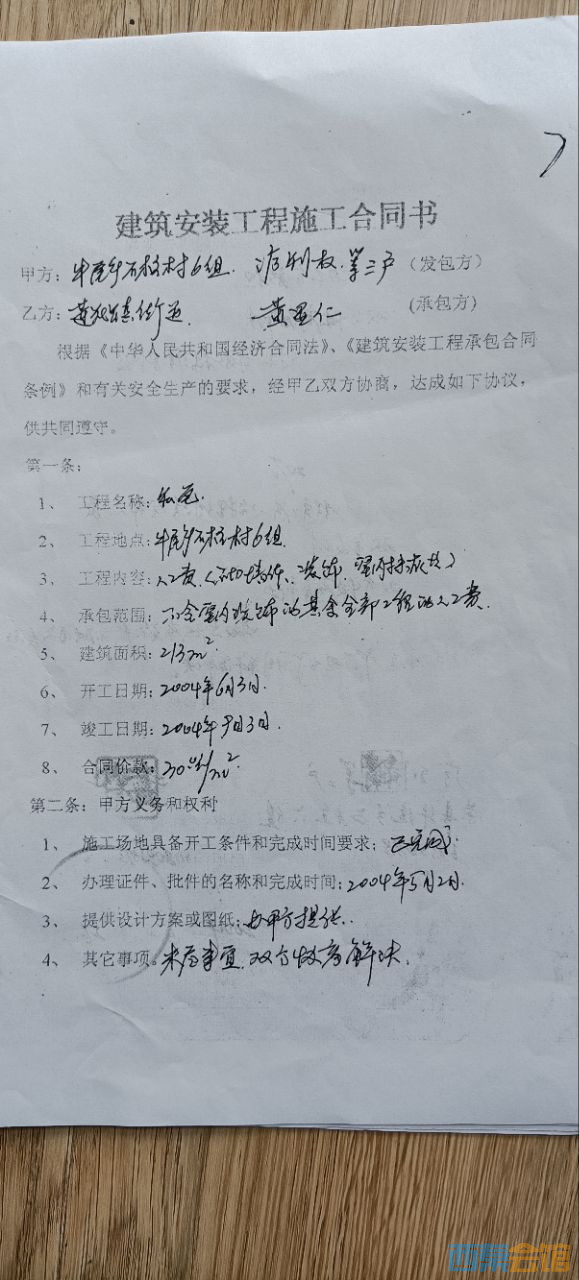 建筑安装工程施工合同书
甲方：石柱村6组 （发包方）
乙方：街道 黄 仁 （承包方）
根据《中华人民共和国经济合同法》、《建筑安装工程承包合同
条例》和有关安全生产的要求，经甲乙双方协商，达成如下协议，
供共同遵守。
第一条：
1、 工程名称：私宅
2、 工程地点：石柱村6组
3、 工程内容：人工费
4、 承包范围：不含室内装饰的其余全部工程的人工费.
5、 建筑面积：213m²
6、 开工日期：2004年6月3日.
7、 竣工日期：2004年9月3日.
8、 合同价款：/m²
第二条：甲方义务和权利
1、 施工场地具备开工条件和完成时间要求：已完成.
2、 办理证件、批件的名称和完成时间：2004年5月2日.
3、 提供设计方案或图纸：由甲方提供.
4、 其它事项。未尽事宜.双方协商解决.
西祠会馆